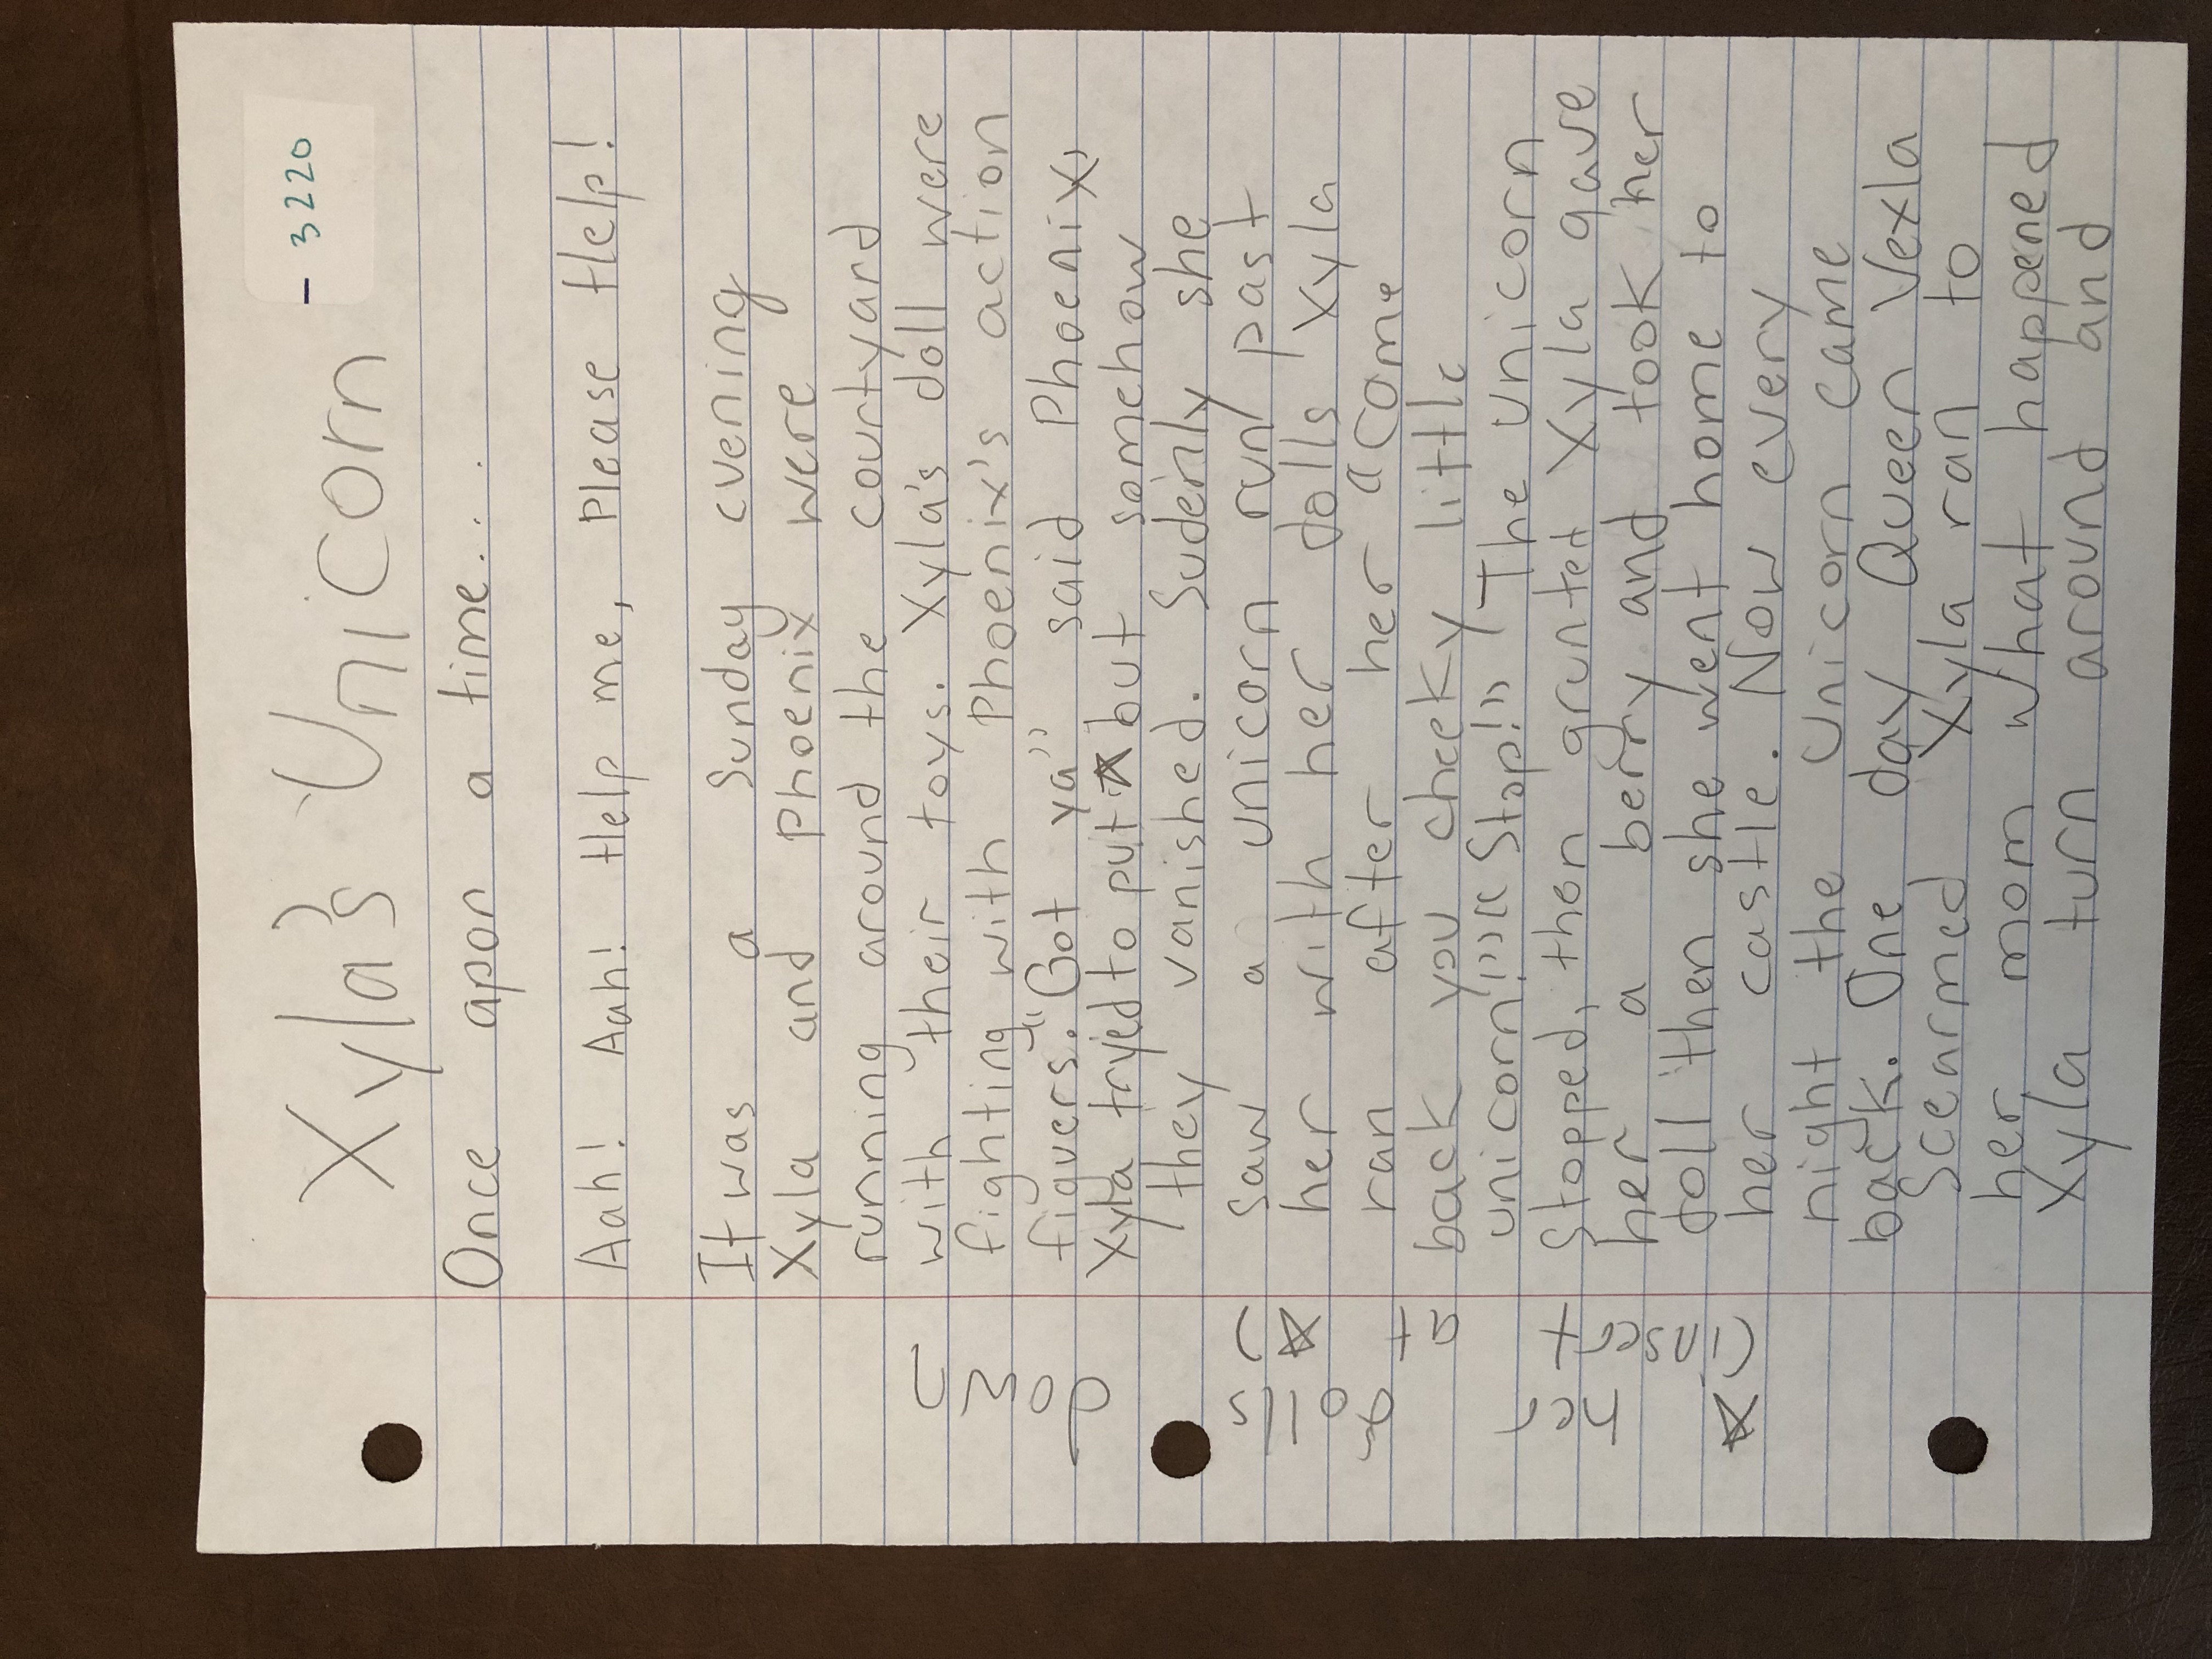 Xyla's Unicorn
- 3220
Once apon a time....
Aah! Aah! Help me, Please Help!
It was a Sunday evening
Xyla and Phoenix were
running around the courtyard
with their toys. Xyla's doll were
fighting with Phoenix's action
figuers. "Got ya" said Phoenix,
Xyla tryed to put ☆ but somehow
they vanished. Sudenly she
saw a unicorn run past
her with her dolls Xyla
ran after her "Come
back you cheeky little
unicorn!" "Stop!" The unicorn
Stopped, then grunted Xyla gave
her a berry and took her
doll then she went home to
her castle. Now every
night the Unicorn came
back. One day Queen Vexla
Scearmed Xyla ran to
her mom what happened
Xyla turn around and
☆ her dolls down
(insert at ☆)